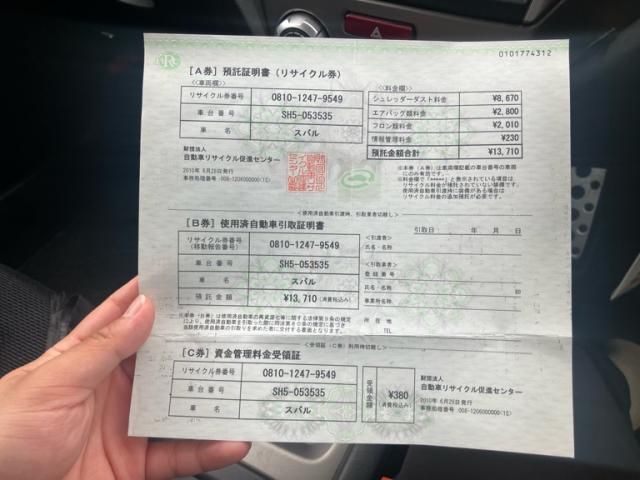 R
0101774312
[A券] 預託証明書 (リサイクル券)
<車両欄>
リサイクル券番号 0810-1247-9549
車台番号 SH5-053535
車名 スバル
<料金欄>
シュレッダーダスト料金 ¥8,670
エアバッグ類料金 ¥2,800
フロン類料金 ¥2,010
情報管理料金 ¥230
預託金額合計 ¥13,710
財団法人
自動車リサイクル促進センター
2010年 6月29日発行
<使用済自動車引取時、引取業者切離し>
[B券] 使用済自動車引取証明書
引取日 年 月 日
リサイクル券番号
(移動報告番号) 0810-1247-9549
車台番号 SH5-053535
車名 スバル
預託金額 ¥13,710 (消費税込み)
<引渡者>
氏名・名称
<引取業者>
登録番号
氏名・名称
事業所名称
所在地
TEL
<受領証 (C券) 利用時切離し>
[C券] 資金管理料金受領証
リサイクル券番号 0810-1247-9549
車台番号 SH5-053535
車名 スバル
受領金額 ¥380
(消費税込み)
財団法人
自動車リサイクル促進センター
2010年 6月29日発行